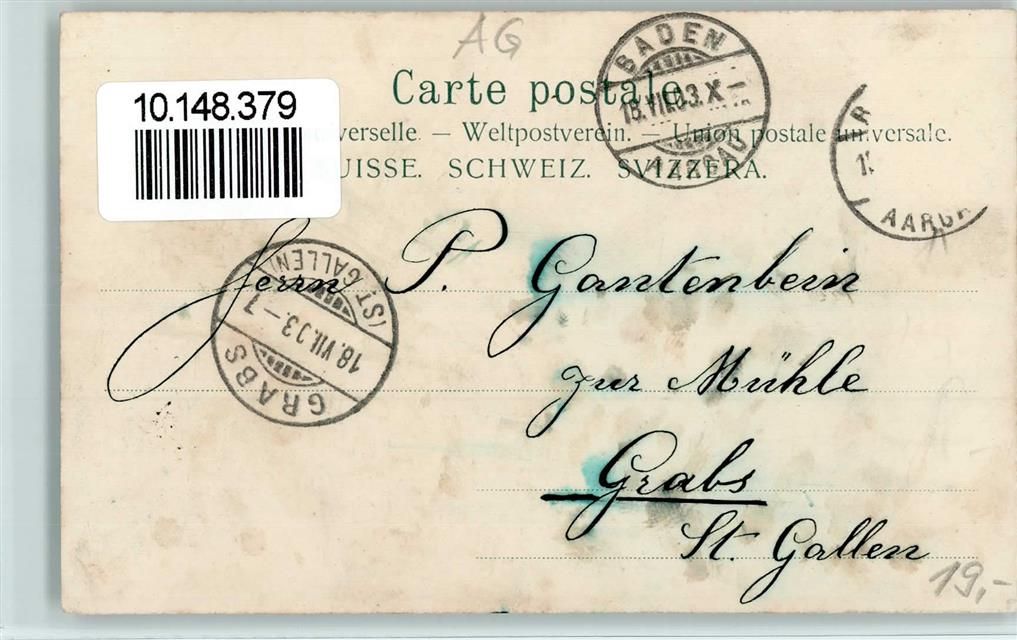 AG
Carte postale.
10.148.379
verselle. — Weltpostverein. — Union postale universale.
UISSE. SCHWEIZ. SVIZZERA.
BADEN
VII.03.X–
AARGAU
AARG
Herrn P. Gantenbein
zur Mühle
Grabs
St. Gallen
(ST. GALLEN)
18.VII.03.–7
GRABS
19,-